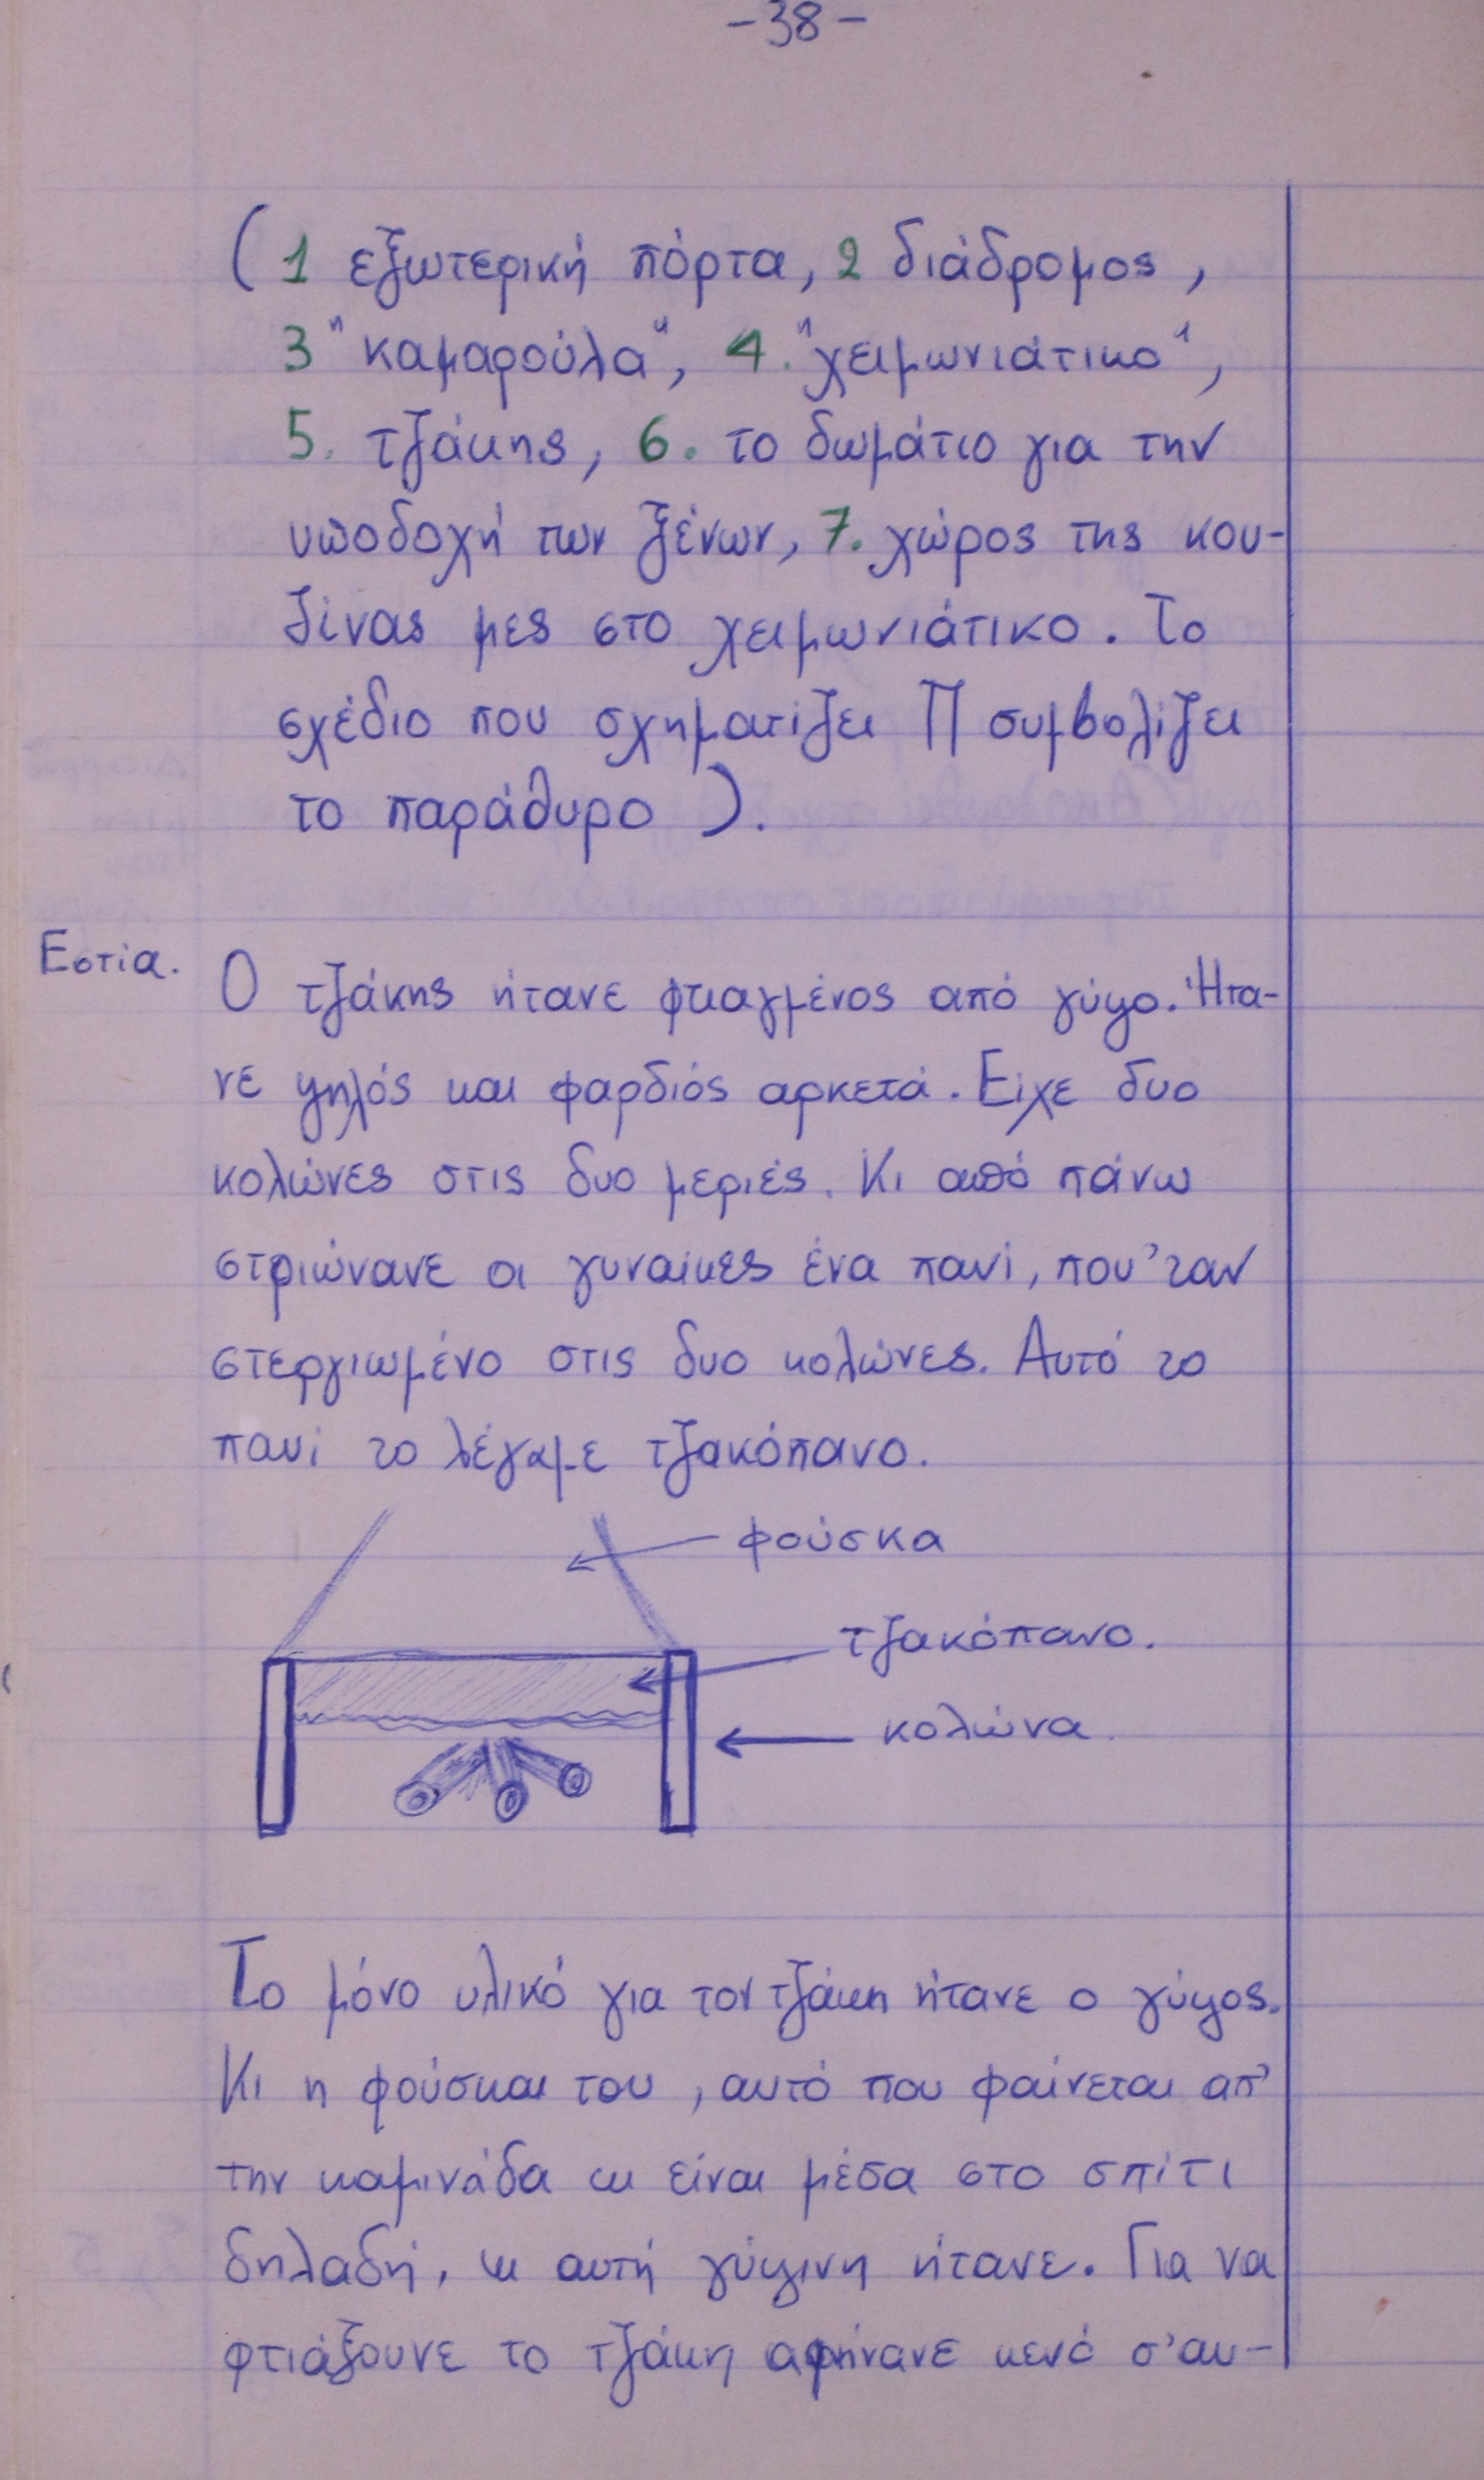 -38-
(1 εξωτερική πόρτα, 2 διάδρομος,
3 "καμαρούλα", 4. "χειμωνιάτικο",
5. τζάκης, 6. το δωμάτιο για την
υποδοχή των ξένων, 7. χώρος της κου-
ζίνας μες στο χειμωνιάτικο. Το
σχέδιο που σχηματίζει Π συμβολίζει
το παράθυρο).
Εστία.
Ο τζάκης ήτανε φτιαγμένος από γύψο. Ήτα-
νε ψηλός και φαρδιός αρκετά. Είχε δυο
κολώνες στις δυο μεριές. Κι από πάνω
στριώνανε οι γυναίκες ένα πανί, που 'ταν
στεργιωμένο στις δυο κολώνες. Αυτό το
πανί το λέγαμε τζακόπανο.
φούσκα
τζακόπανο.
κολώνα.
Το μόνο υλικό για τον τζάκη ήτανε ο γύψος.
Κι η φούσκαι του, αυτό που φαίνεται απ'
την καμινάδα κι είναι μέσα στο σπίτι
δηλαδή, κι αυτή γύψινη ήτανε. Για να
φτιάξουνε το τζάκη αφήνανε κενό σ' αυ-